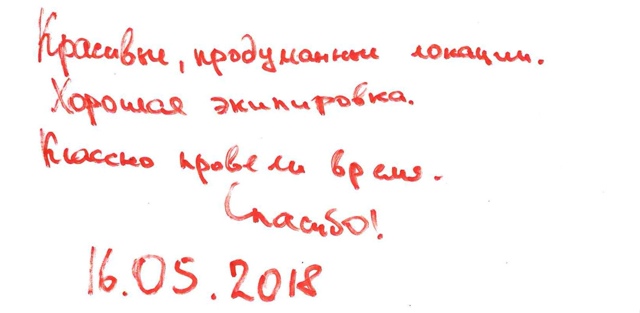 Красивые, продуманные локации.
Хорошая экипировка.
Классно провели время.
Спасибо!
16.05.2018